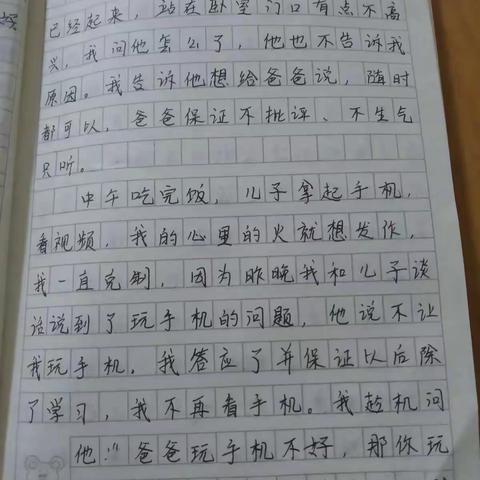 已经起来，站在卧室门口有点不高
兴，我问他怎么了，他也不告诉我
原因。我告诉他想给爸爸说，随时
都可以，爸爸保证不批评、不生气
只听。
中午吃完饭，儿子拿起手机，
看视频，我的心里的火就想发作，
我一直克制，因为昨晚我和儿子谈
话说到了玩手机的问题，他说不让
我玩手机，我答应了并保证以后除
了学习，我不再看手机。我趁机问
他：“爸爸玩手机不好，那你玩